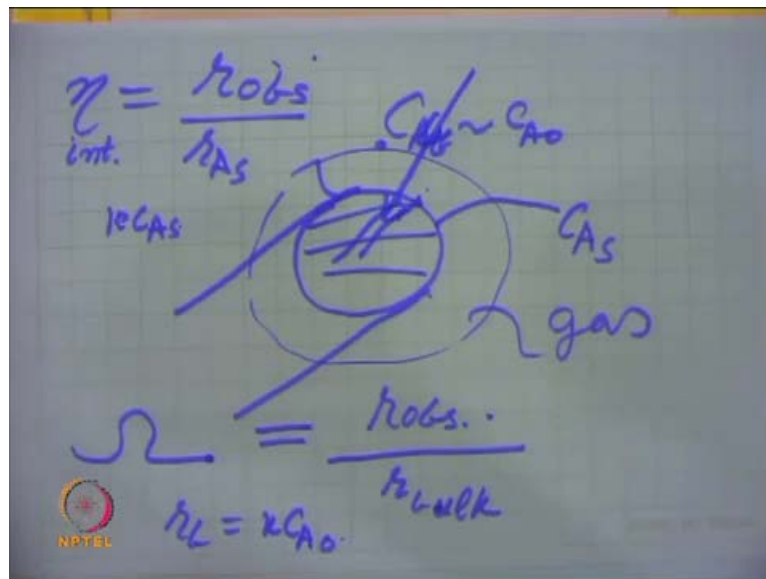 η = r obs
int. r As
C ~ C A0
k C As
C As
gas
Ω = r obs..
r bulk
r b = k C A0.
NPTEL